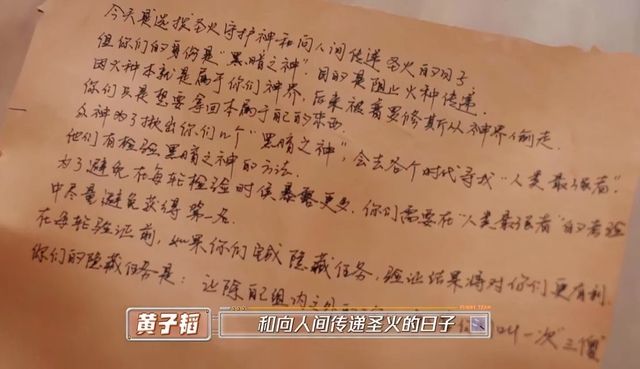 今天是选拔圣火守护神和向人间传递圣火的日子
但你们的身份是“黑暗之神”,目的是阻止火神传递.
因火种本就是属于你们神界,后来被普罗修斯从神界偷走.
你们只是想要拿回本属于自己的东西.
众神为了找出你们几个“黑暗之神”,会去各个时代寻找“人类最强者”.
他们有检验黑暗之神的方法.
为了避免在每轮检验时候暴露更多,你们需要在“人类最强者”的考验
中尽量避免获得第一名.
在每轮验证前,如果你们完成隐藏任务,验证结果将对你们更有利.
你们的隐藏任务是:让除自己组内之外 叫一次“三傻”
黄子韬
和向人间传递圣火的日子